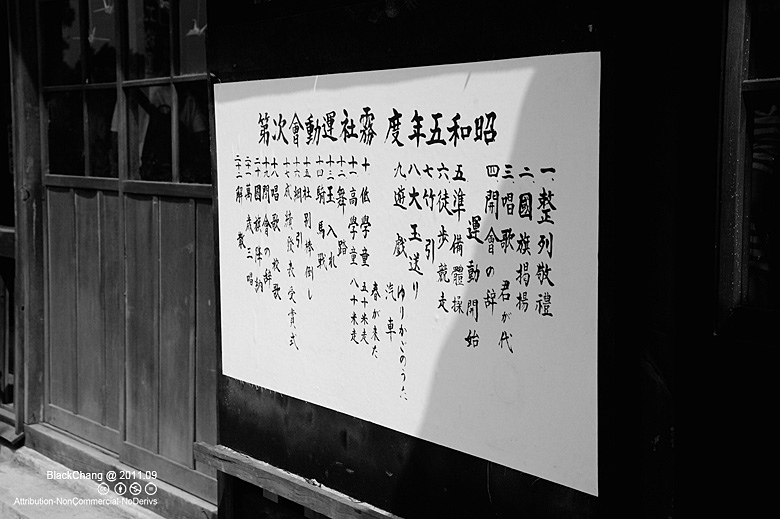 昭和五年度 霧社運動會次第
一、整列敬禮
二、國旗掲揚
三、唱歌 君が代
四、開會の辞
運動開始
五 準備體操
六 徒歩競走
七 竹引
八 大玉送り
九 遊戯 汽車 ゆりかごのうた 春が来た
十 低學童 五十米走
十一 高學童 八十米走
十二 舞踏
十三 玉入れ
十四 騎馬戦
十五 社別棒倒し
十六 綱引
十七 成績発表受賞式
十八 唱歌 校歌
十九 閉會の辞
二十 國旗降納
二十一 萬歳三唱
二十二 解散
BlackChang @ 2011.09
Attribution-NonCommercial-NoDerivs